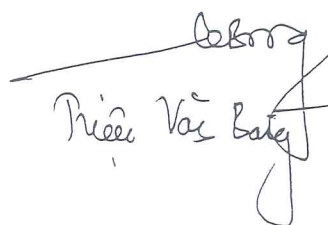 Triệu Văn Bằng